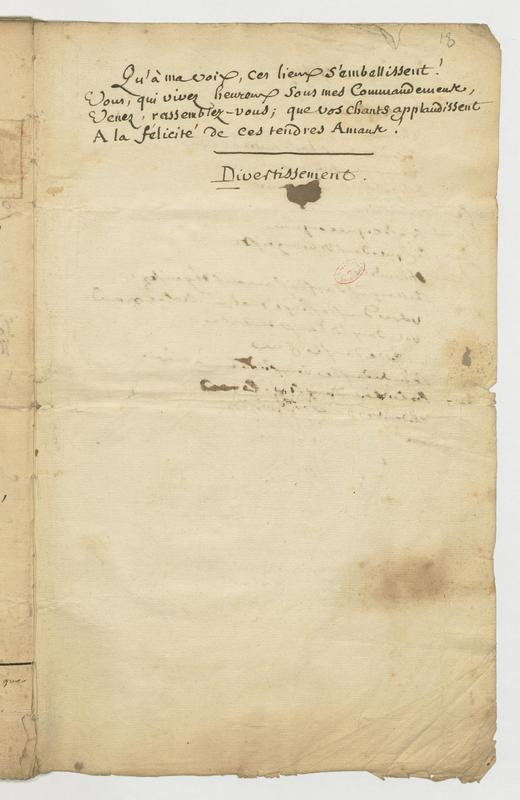 18
Qu'à ma voix, ces lieux s'embellissent!
Vous, qui vivez heureux sous mes Commandements,
Venez, rassemblez-vous; que vos chants applaudissent
A la félicité de ces tendres Amants.
Divertissement.
que